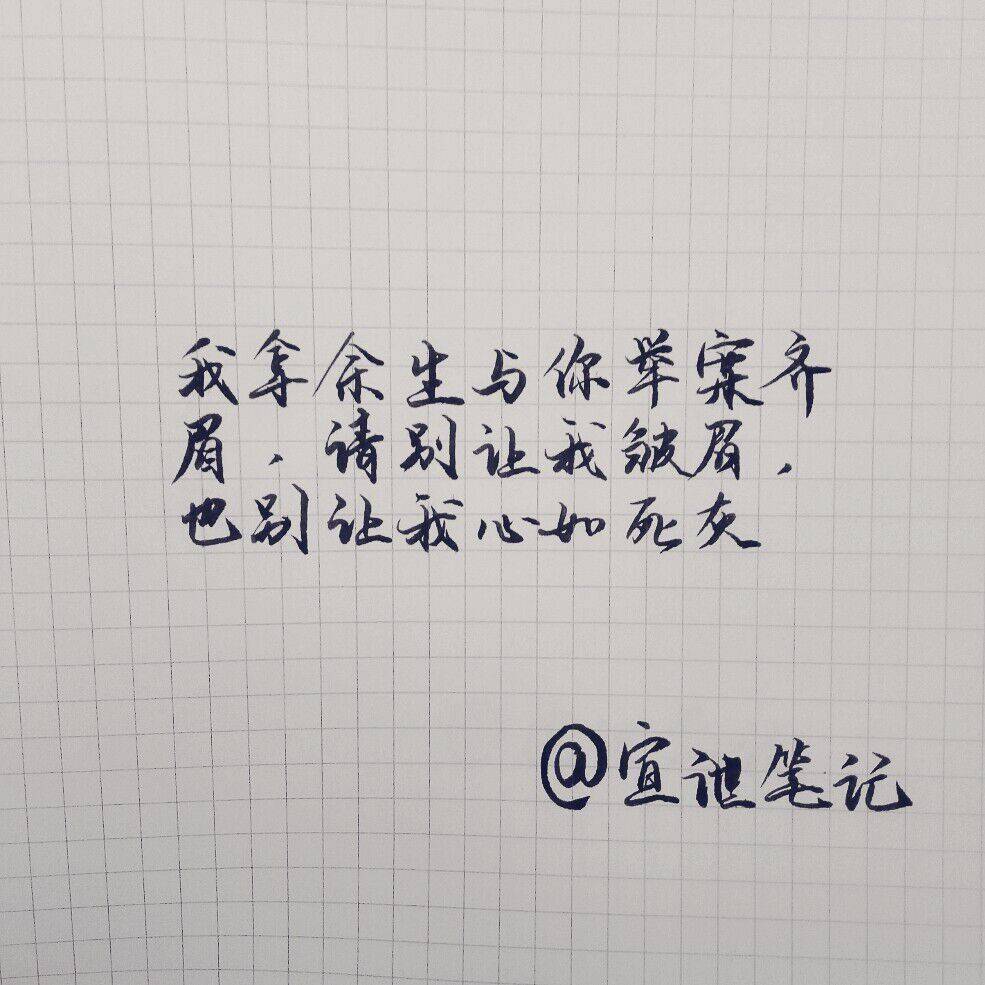 我拿余生与你举案齐
眉，请别让我皱眉，
也别让我心如死灰
@宣池笔记